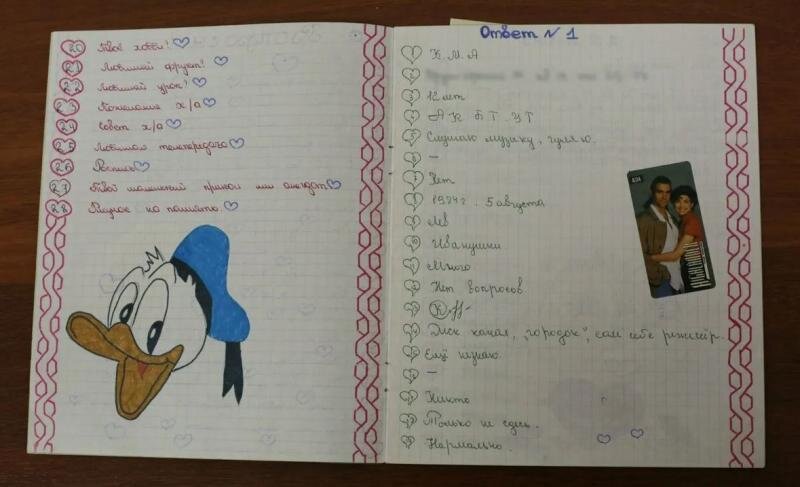 20 Твоё хобби?
21 Любимый фрукт?
22 Любимый урок?
23 Пожелания х/а
24 Совет х/а
25 Любимая телепередача
26 Роспись
27 Твой маленький прикол или анекдот
28 Рисунок на память.
Ответ № 1
1 К. М. А
2
3 12 лет
4 АК БТ. УТ
5 Слушаю музыку, гуляю.
6 –
7 Нет
8 1984 г. 5 августа
9 Лев
10 Иванушки
11 Много
12 Нет вопросов
13
14 Диск канал, "городок", сам себе режиссёр.
15 Ещё незнаю.
16 –
17 Никто
18 Только не здесь.
19 Нармально.